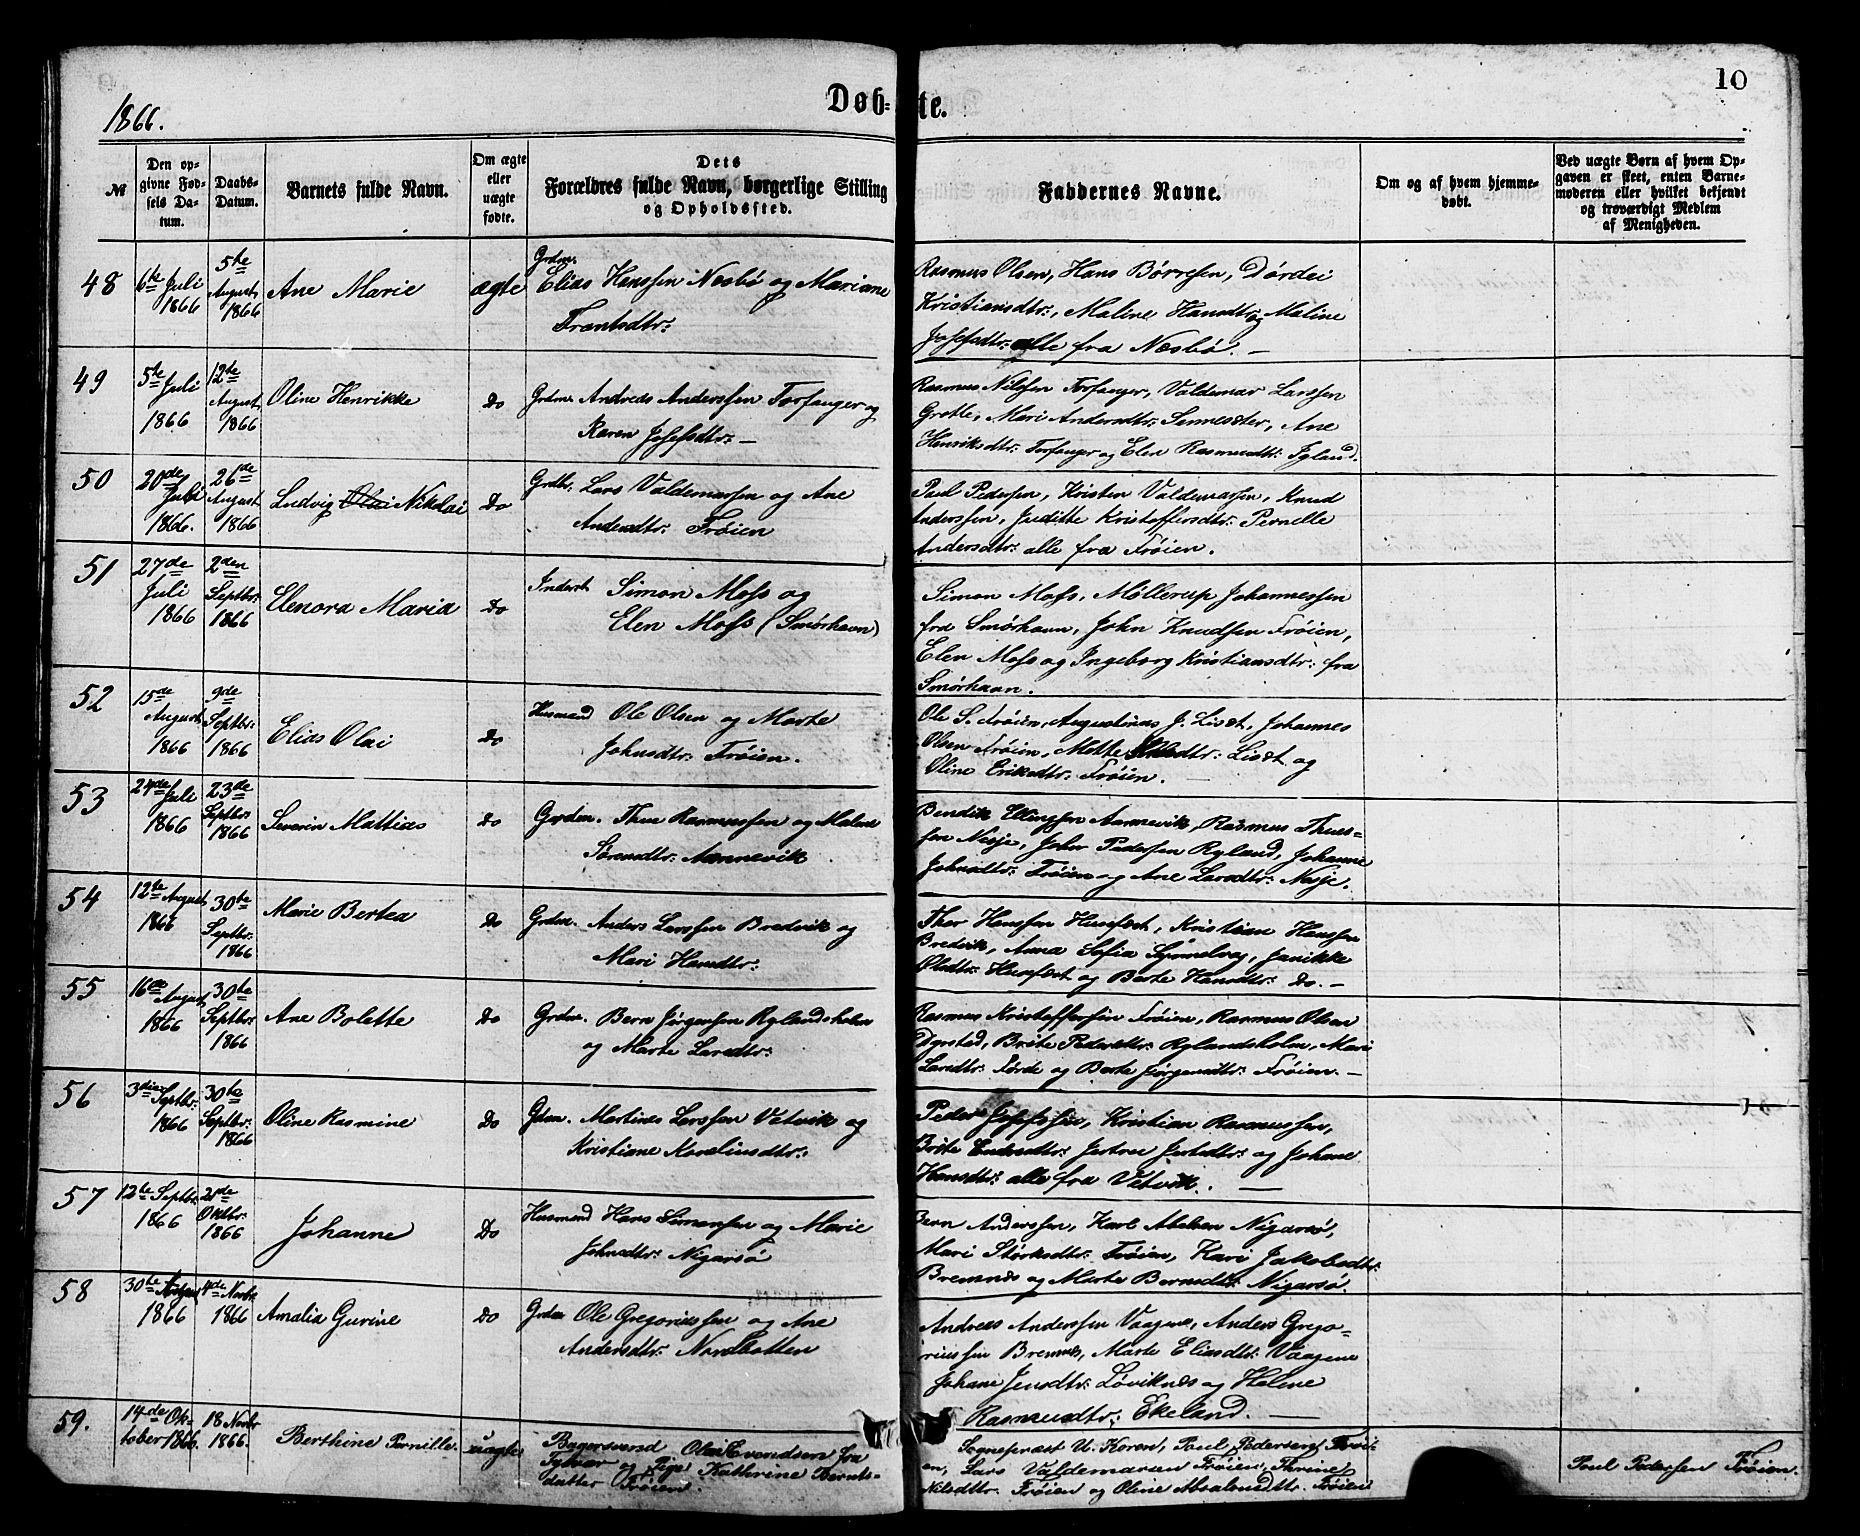 1866.
Døb-
te.
10
№
Den op-
givne Fød-
sels Da-
tum.
Daabs-
Datum.
Barnets fulde Navn.
Om ægte
eller
uægte
fødte.
Dets
Forældres fulde Navn, borgerlige Stilling
og Opholdssted.
Faddernes Navne.
Om og af hvem hjemme-
døbt.
Ved uægte Børn af hvem Op-
gaven er skeet, enten Barne-
moderen eller hvilket bekjendt
og troværdigt Medlem
af Menigheden.
48
6te Juli
1866
5te
August
1866
Ane Marie
ægte
Grdm.
Elias Hanssen Nesbø og Mariane
Frantsdtr:
Rasmus Olsen, Hans Børresen, Dórdei
Kristiansdtr:, Maline Hansdtr: og Maline
Josefsdtr: alle fra Nesbø. —
49
5te Juli
1866
12te
August
1866
Oline Henrikke
Do
Grdm. Andreas Anderssen Torfanger og
Karen Josefsdtr: —
Rasmus Nilssen Torfanger, Valdemar Larssen
Grotle, Mari Andersdtr: Sennesæter, Ane
Henriksdtr: Torfanger og Elen Rasmusdtr: Igland.
50
20de
Juli
1866.
26de
August
1866
Ludvig Olai Nikolai
Do
Grdbr. Lars Valdemarssen og Ane
Andersdtr: Frøien
Paul Pederssen, Kristen Valdemarssen, Knud
Anderssen, Juditte Kristoffersdtr: Pernelle
Andersdtr: alle fra Frøien.
51
27de
Juli
1866
2den
Septbr:
1866
Elenora Maria
Do
Inderst Simon Moss og
Elen Moss (Smørhavn)
Simon Moss, Møllerup Johannessen
fra Smørhavn, John Knudssen Frøien,
Elen Moss og Ingeborg Kristiansdtr: fra
Smørhavn.
52
15de
August
1866
9de
Septbr:
1866
Elias Olai
Do
Husmand Ole Olsen og Marte
Johnsdtr: Frøien.
Ole S. Frøien, Augustinus J. Liset, Johannes
Olsen Frøien, Mette Olsdtr: Liset og
Oline Eriksdtr: Frøien. —
53
24de Juli
1866
23de
Septbr:
1866
Severin Mattias
Do
Grdm. Thue Rasmussen og Malene
Sørensdtr: Aannevik
Bendik Ellingsen Aannevik, Rasmus Thues-
sen Nesje, John Pederssen Rylandː, Johanne
Johnsdtr: Frøien og Ane Larsdtr: Nesje.
54
12te August
1866
30te
Septbr:
1866
Marie Bertea
Do
Grdm. Anders Larssen Bredvik og
Mari Hansdtr:
Thor Hanssen Husefæst, Kristian Hanssen
Bredvik, Anna Sofia Synnelvag, Janikke
Olsdtr: Husefæst og Berte Hansdtr: Do. —
55
16de August
1866
30te
Septbr:
1866
Ane Bolette
Do
Grdm. Bern Jørgenssen Rylandsholm
og Marte Larsdtr:
Rasmus Kristofferssen Frøien, Rasmus Olsen
Dyrstad, Brite Pedersdtr: Rylandsholm, Mari
Larsdtr: Førde og Berte Jørgensdtr: Frøien. —
56
3die Septbr:
1866
30te
Septbr:
1866
Oline Rasmine
Do
Gdm. Martines Larssen Vetvik og
Kristiane Korneliusdtr:
Peder Josefssen, Kristian Rasmussen,
Brite Endresdtr: Jertru Jertsdtr: og Johane
Hansdtr: alle fra Vetvik. —
57
12te Septbr:
1866
21de
Oktbr:
1866
Johanne
Do
Husmand Hans Simonssen og Marie
Johnsdtr: Nigarsø
Bern Anderssen, Karl Abelsen Nigarsø,
Mari Störksdtr: Frøien, Kari Jakobsdtr:
Bremnes og Marte Bernsdtr: Nigarsø.
58
30te August
1866
4de Novbr:
1866
Amalia Gurine
Do
Grdm Ole Gregoriussen og Ane
Andersdtr: Nordbotten
Andreas Anderssen Vaagene, Anders Grego-
riussen Bremnes, Marte Eliasdtr: Vaagene
Johane Jensdtr: Løviknes og Helene
Rasmusdtr: Ekeland. —
59.
14de Ok-
tober 1866.
18 Novbr
1866.
Berthine Pernille.
uægte
Bagersvend Olai Evendsen fra
Tysvær og Pige Kathrine Bernts-
datter Frøien.
Sogneprest U. Koren, Paul Pedersen Frøi-
en, Lars Valdemarsen Frøien, Thrine
Nilsdtr. Frøien og Oline Absalonsdtr. Frøien
Paul Pedersen Frøien.